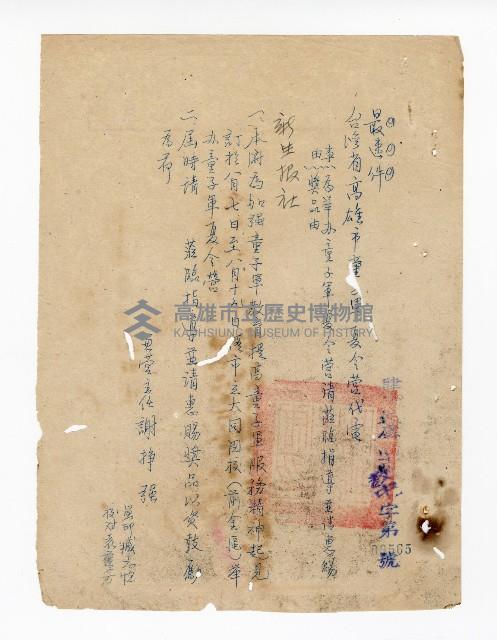 最速件
台灣省高雄市童子軍夏令營代電
事由 為舉办童子軍夏令營請蒞臨指導並請惠賜獎品由
新生报社
一、本府為加强童子軍教育提高童子軍服務精神起見
訂於八月七日至八月十五日假市立大同国校(前金區)舉
办童子軍夏令營
二、屆時請 蒞臨指導並請惠賜獎品以資鼓勵
為荷
謝掙强
主任
字第 號
00565
高雄市立歷史博物館
KAOHSIUNG MUSEUM OF HISTORY